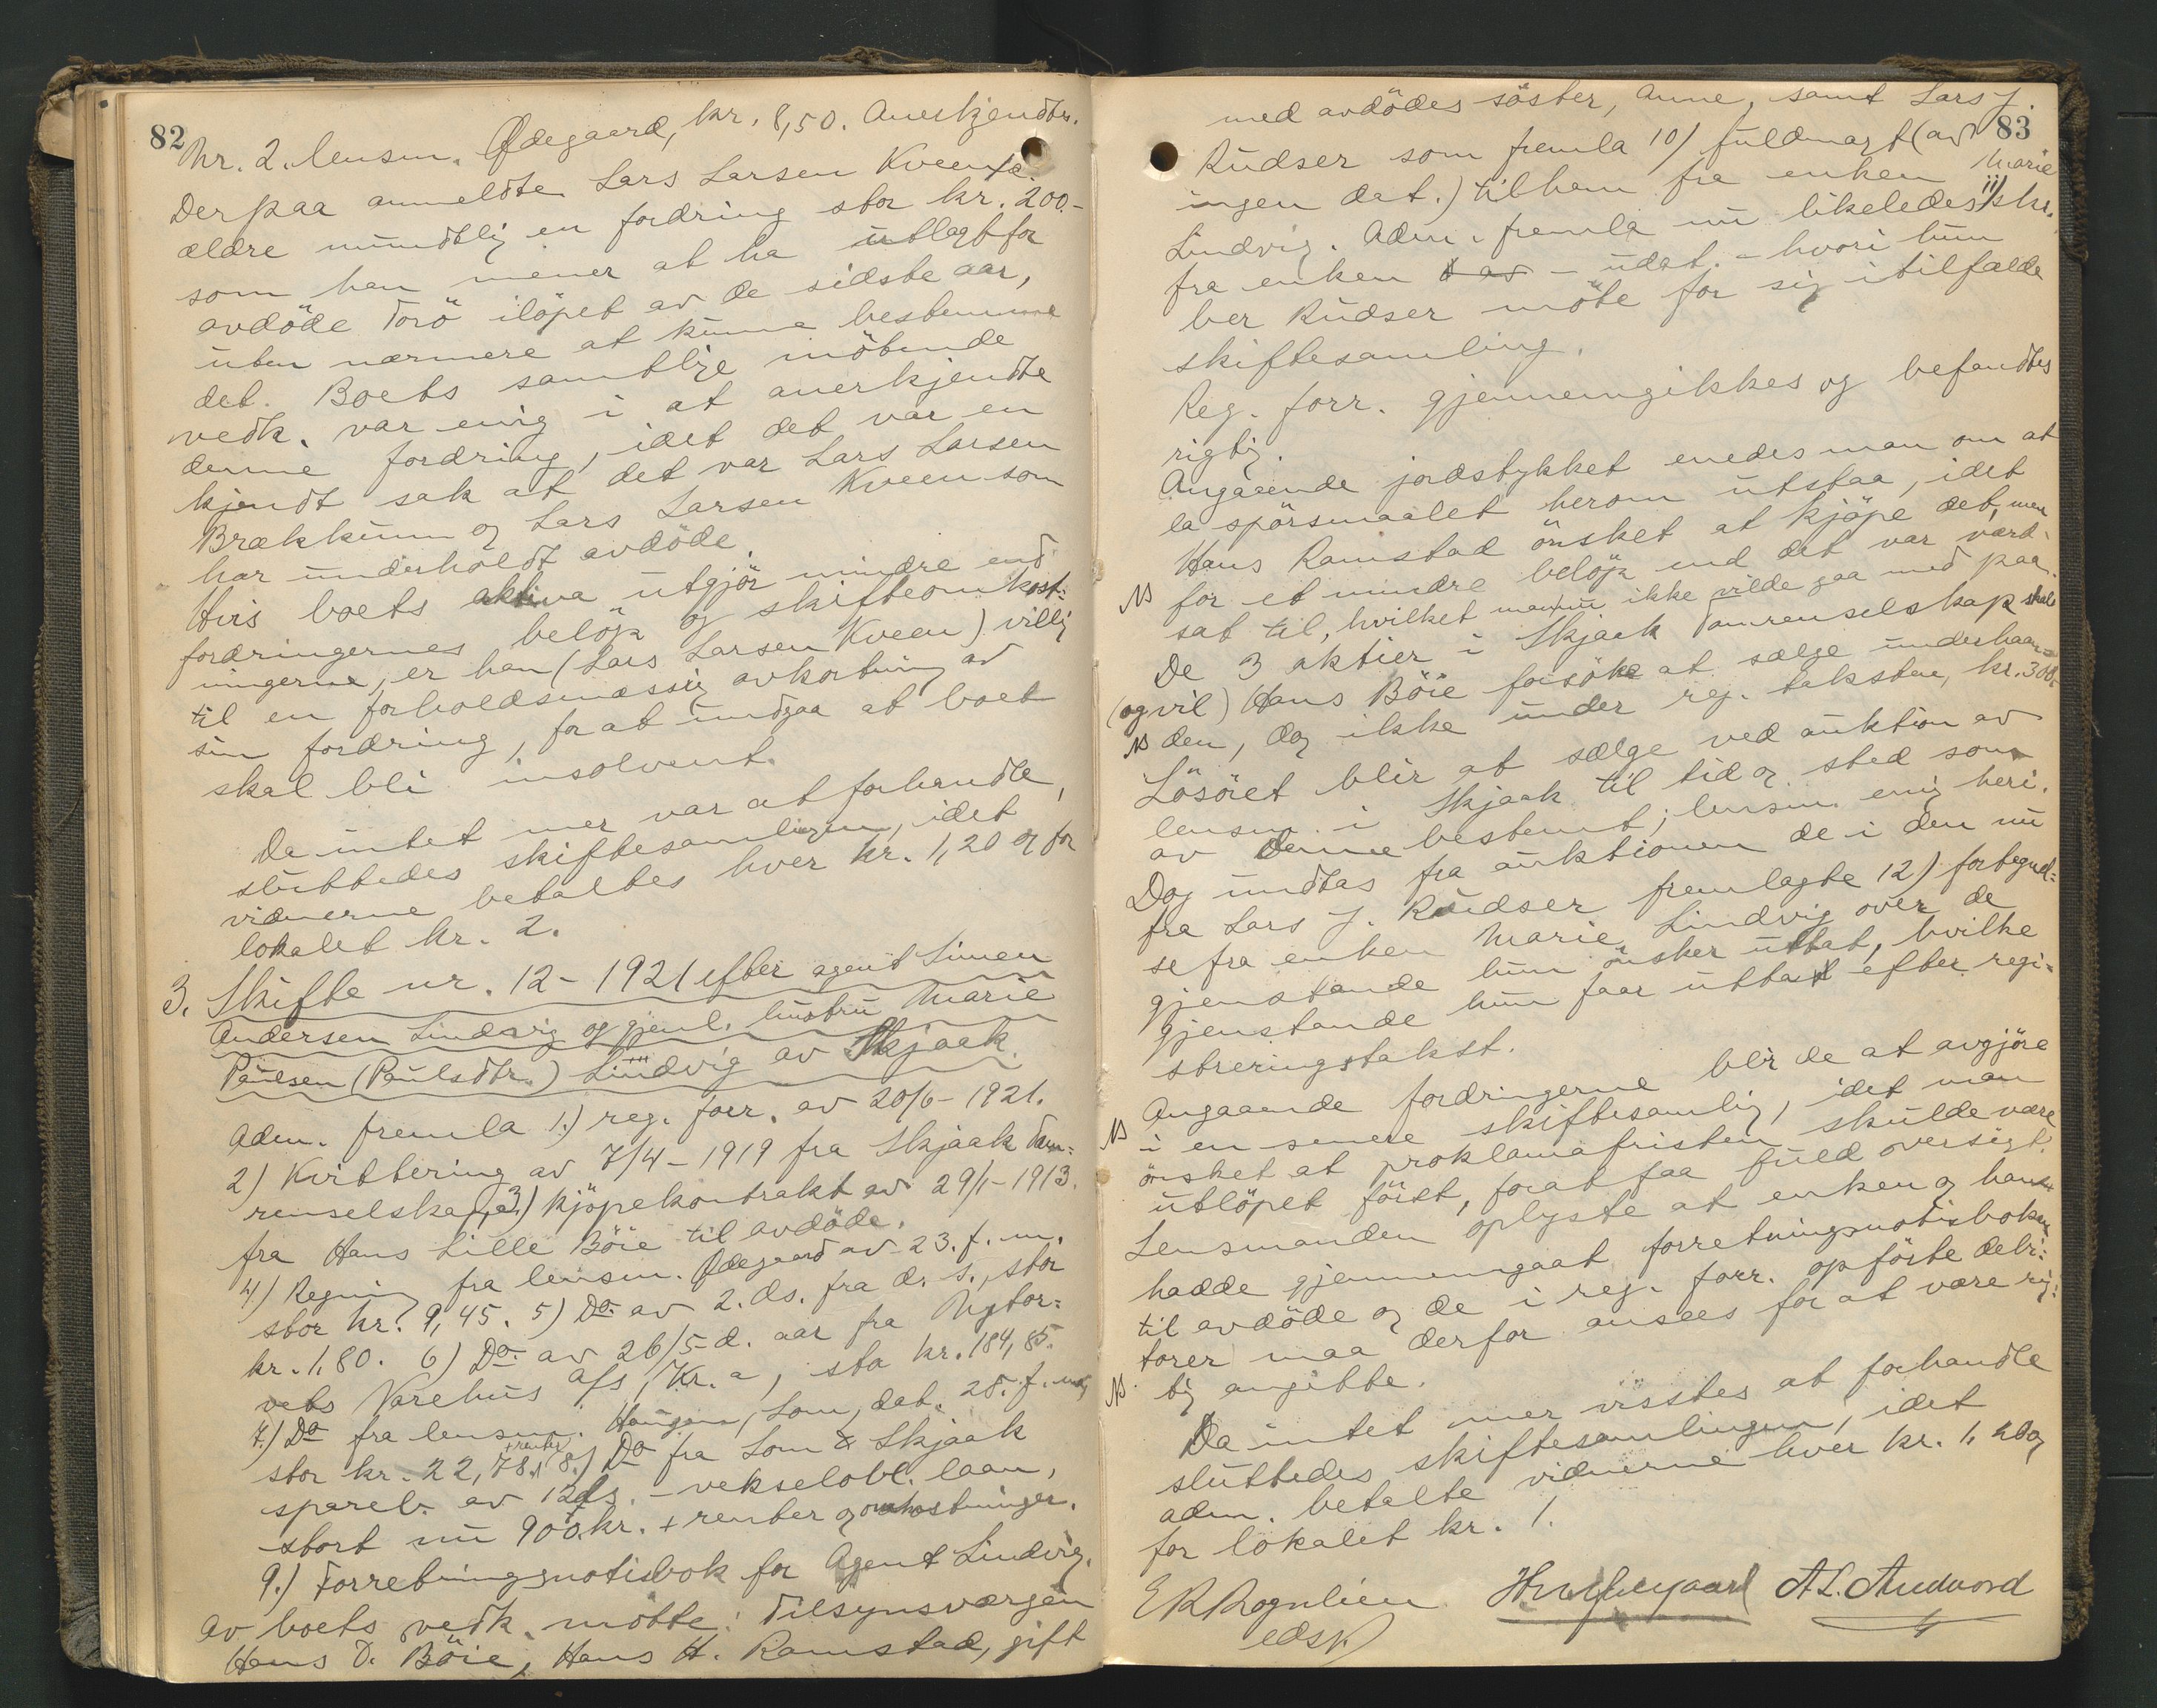 82
Nr. 2. lensm. Ødegaard, kr. 8,50. Anerkjendtes.
Derpaa anmeldte Lars Larsen Kveen
ældre mundtlig en fordring stor kr. 200.-
som han mener at ha utlagt for
avdöde Torö ilöpet av de sidste aar,
uten nærmere at kunne bestemme
det. Boets samtlige mötende
vedk. var enig i at anerkjendte
denne fordring, idet det var en
kjendt sak at det var Lars Larsen
Brækkum og Lars Larsen Kveen som
har underholdt avdöde.
Hvis boets aktiva utgjör mindre end
fordringernes belöp og skifteomkost:
ningerne, er han (Lars Larsen Kveen) villig
til en forholdsmæssig avkortning av
sin fordring, for at undgaa at boet
skal bli insolvent.
Da intet mer var at forhandle,
sluttedes skiftesamlingen, idet
vidnerne betaltes hver kr. 1,20 og for
lokalet kr. 2.
3. Skifte nr. 12 - 1921 efter agent Simen
Andersen Lindvig og gjenl. hustru Marie
Paulsen (Paulsdtr.) Lindvig av Skjaak.
Adm. fremla 1.) reg. forr. av 20/6 - 1921.
2) Kvittering av 7/4 - 1919 fra Skjaak Tøm-
renselskap, 3) kjöpekontrakt av 29/1 - 1913.
fra Hans Lille Böie til avdöde.
4) Regning fra lensm. Ødegaard av 23. f. m.
stor kr. 9,45. 5) Do. av 2. ds. fra d. s., stor
kr. 1,80. 6) Do. av 26/5 d. aar fra Nytor-
vets Varehus A/s, Kr.a, sto kr. 184,85.
7.) Do fra lensm. Haugen, Lom, dat. 28. f. m,
stor kr. 22,78. + renter 8.) Do fra Lom & Skjaak
spareb. av 12 ds. - vekselobl. laan,
stort nu 900. kr. + renter og omkostninger.
9.) Forretningsnotisbok for Agent Lindvig.
Av boets vedk. møtte: Tilsynsværgen
Hans D. Böie, Hans H. Ramstad, gift
83
med avdödes söster, Anne, samt Lars J.
Rudser som fremla 10) fuldmagt (av
ingen dat.) til ham fra enken Marie
Lindvig. Adm. fremla nu likeledes 11) skr.
fra enken - udat. - hvori hun
ber Rudser möte for sig i tilfælde
skiftesamling.
Reg. forr. gjennemgikkes og befandtes
rigtig.
Angaaende jordstykket enedes man om at
la spörsmaalet herom utstaa, idet
Hans Ramstad önsket at kjöpe det, men
for et mindre belöp end det var værd-
sat til, hvilket man nu ikke vilde gaa med paa.
De 3 aktier i Skjaak Tømrenselskap skal
(og vil) Hans Böie forsöke at sælge underhaan-
den, dog ikke under reg. taksten, kr. 300.
Lösöret blir at sælge ved auktion av
lensm. i Skjaak til tid og sted som
av denne bestemt; lensm. enig heri.
Dog undtas fra auktionen de i den nu
fra Lars J. Rudser fremlagte 12) fortegnel:
se fra enken Marie Lindvig over de
gjenstande hun önsker uttat, hvilke
gjenstande hun faar uttat efter regi-
streringstakst.
Angaaende fordringerne blir de at avgjöre
i en senere skiftesamling, idet man
önsket at proklamafristen skulde være
utlöpet först, forat faa fuld oversigt.
Lensmanden oplyste at enken og han
hadde gjennemgaat forretningsnotisboken
til avdöde og de i reg. forr. opförte debi:
torer maa derfor ansees for at være rig:
tig angitte.
Da intet mer visstes at forhandle
sluttedes skiftesamlingen, idet
adm. betalte vidnerne hver kr. 1,20 og
for lokalet kr. 1.
E R Rognlien
edsv.
A L. Andvord